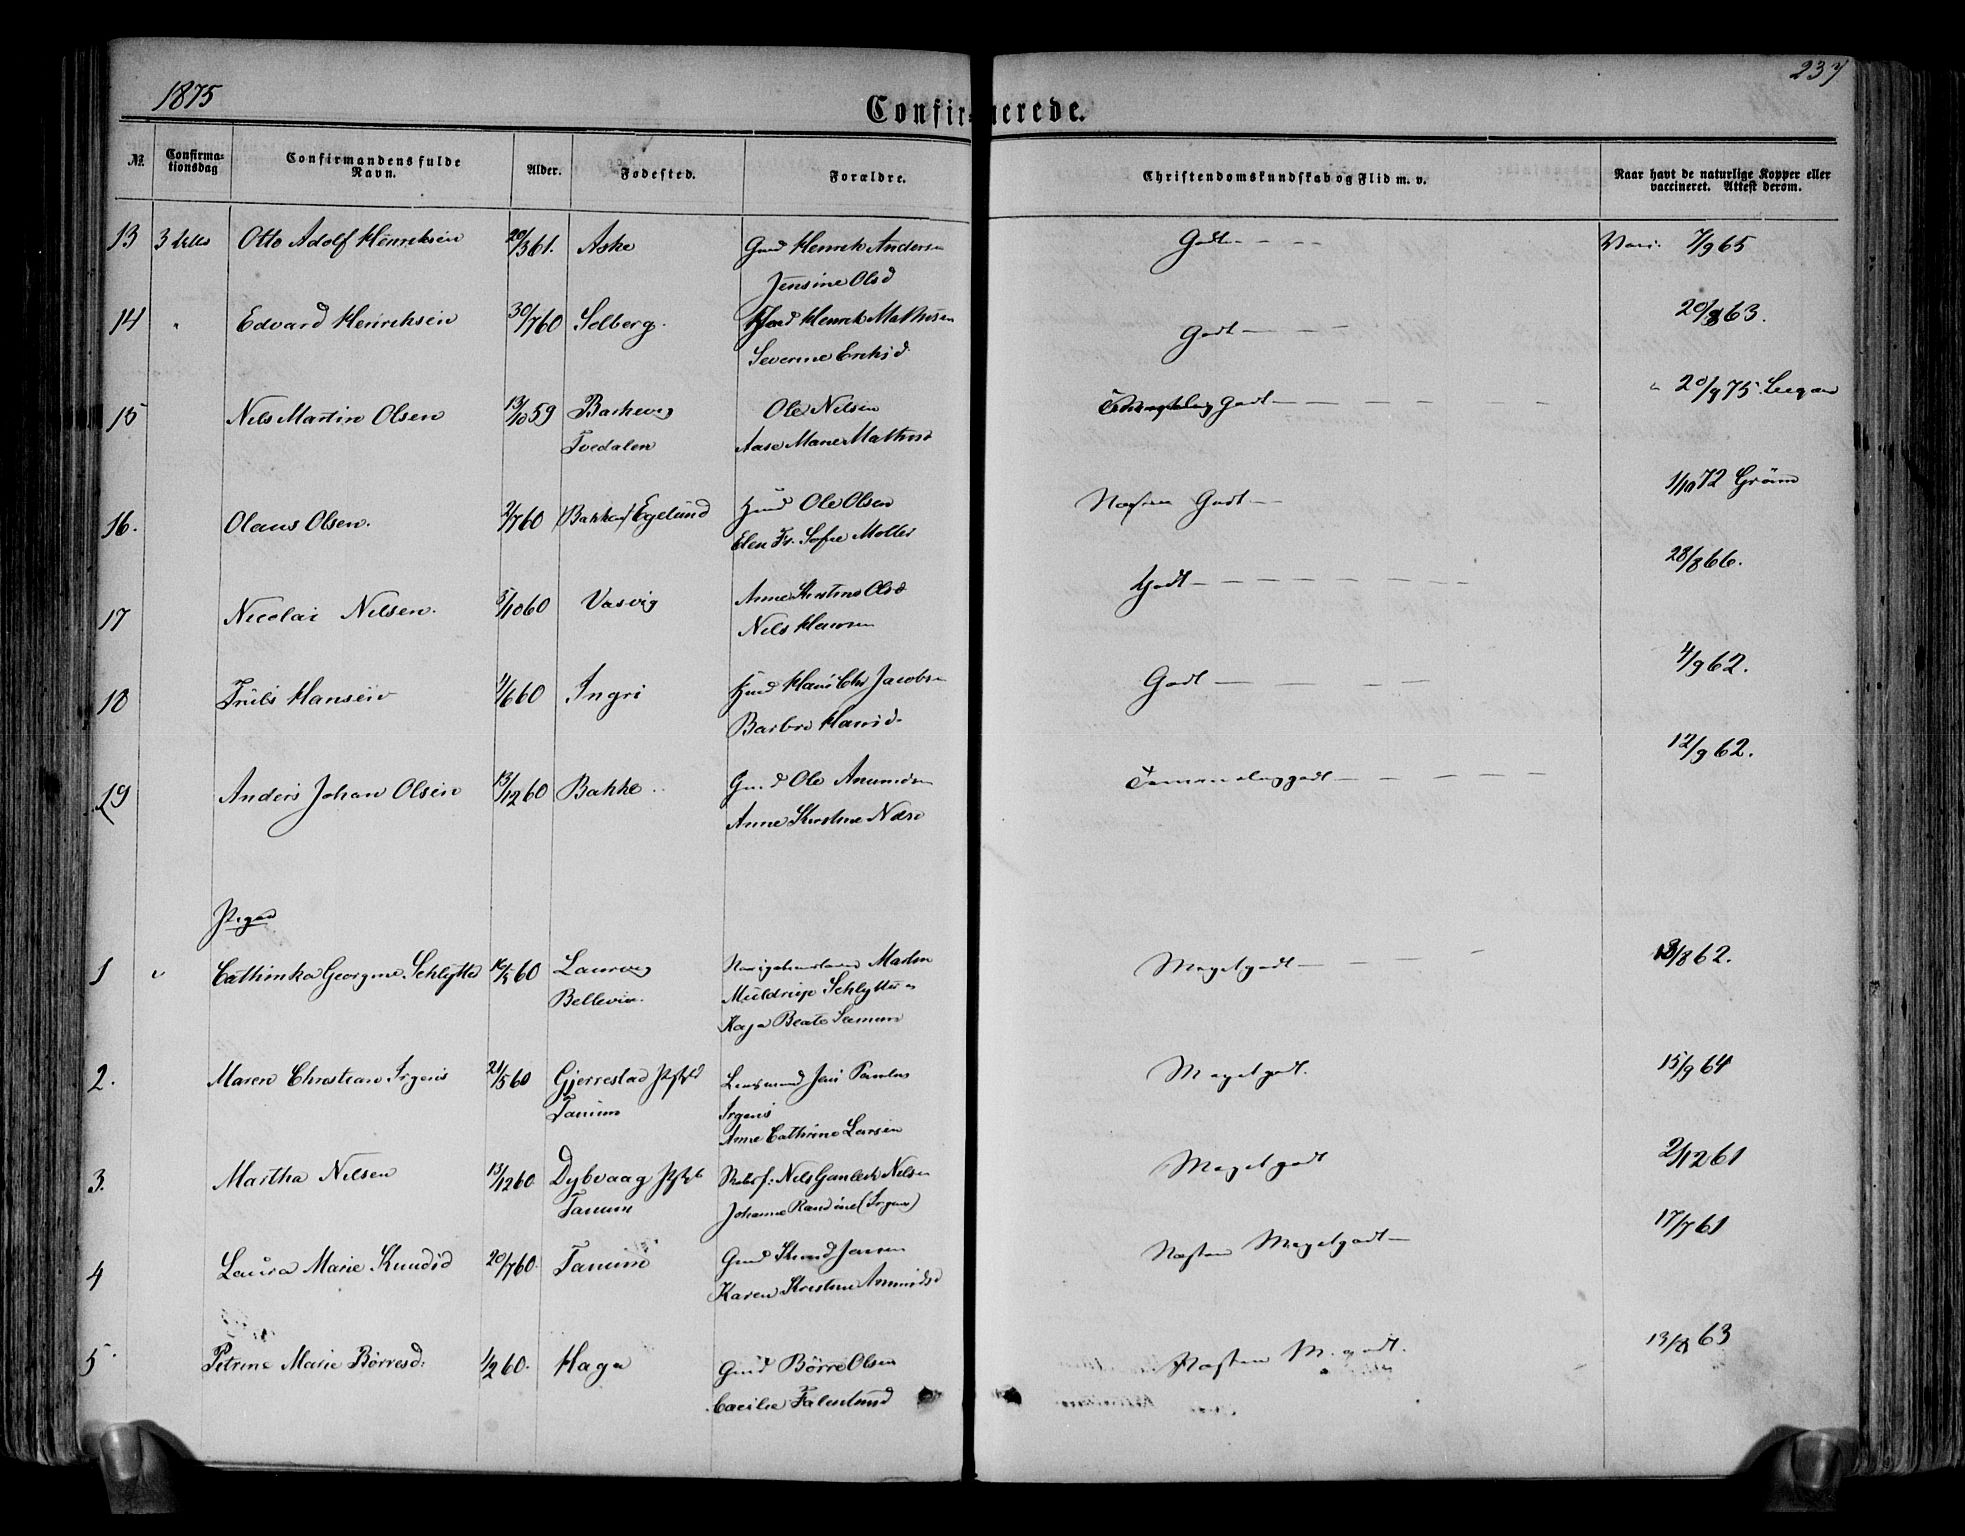 1875
237
Confirmerede.
№
Confirma-
tionsdag
Confirmandens fulde
Navn.
Alder.
Fødested.
Forældre.
Christendomskundskab og Flid m. v.
Naar havt de naturlige Kopper eller
vaccineret. Attest derom.
13 Otto Adolf Henriksen 20/3 61. Aske Gmd Henrik Andersen Godt — — — Vac: 7/9 65
Jensine Olsd
14 " Edvard Henriksen 30/7 60 Solberg. Henrik Mathisen Godt — — — 20/8 63.
Severine Eriksd
15 Nils Martin Olsen 13/10 59 Barkevig Ole Nilsen Godt — — — " 20/9 75
Tvedalen Aase Marie Mathisd
16. Olaus Olsen. 2/7 60 (Bakken) Egelund Hmd Ole Olsen Næsten Godt — 1/10 72 Grönn
Elen Fr. Sofie Møller
17 Nicolai Nilsen. 5/10 60 Vasvig Anne Kirstine Olsd Godt — — — 28/8 66.
Nils Hansen
18 Truls Hansen 4/6 60 Ingri Hmd Hans Chr Jacobsen Godt — — — 4/9 62.
Barbro Hansd.
19 Anders Johan Olsen 13/12 60 Bakke Gmd Ole Anundsen Temmelig godt — — — 12/9 62.
Anne Kirstine Nilsd
Piger
1 " Cathinka Georgine Schlytter 60 Laurvig Martin Meget godt — — — 18/8 62.
Bellevue. Muldrup Schlytter
Kaja Beate
2. Maren Christiane Irgens 21/5 60 Gjerrestad Lensmand Jens Paulus Meget godt. 15/9 61
Tanum Irgens
Anne Cathrine Larsen
3. Martha Nilsen 13/12 60. Dybvaag Nils Nilsen Meget godt 2/12 61
Tanum Johanne Randine (Irgens)
4 Laura Marie Knudsd 20/7 60. Tanum Gmd Knud Jensen Næsten Meget godt — 17/7 61
Karen Kristine Anundsd
5. Petrine Marie Børresd. 1/2 60. Haga Gmd Børre Olsen Næsten M. godt. 13/8 63
Cecilie Falentund